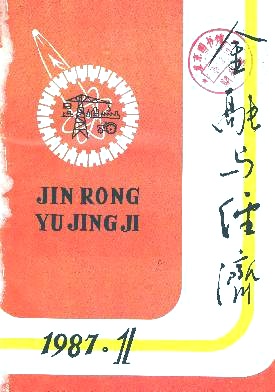 金融与经濟
JIN RONG
YU JING JI
1987·11